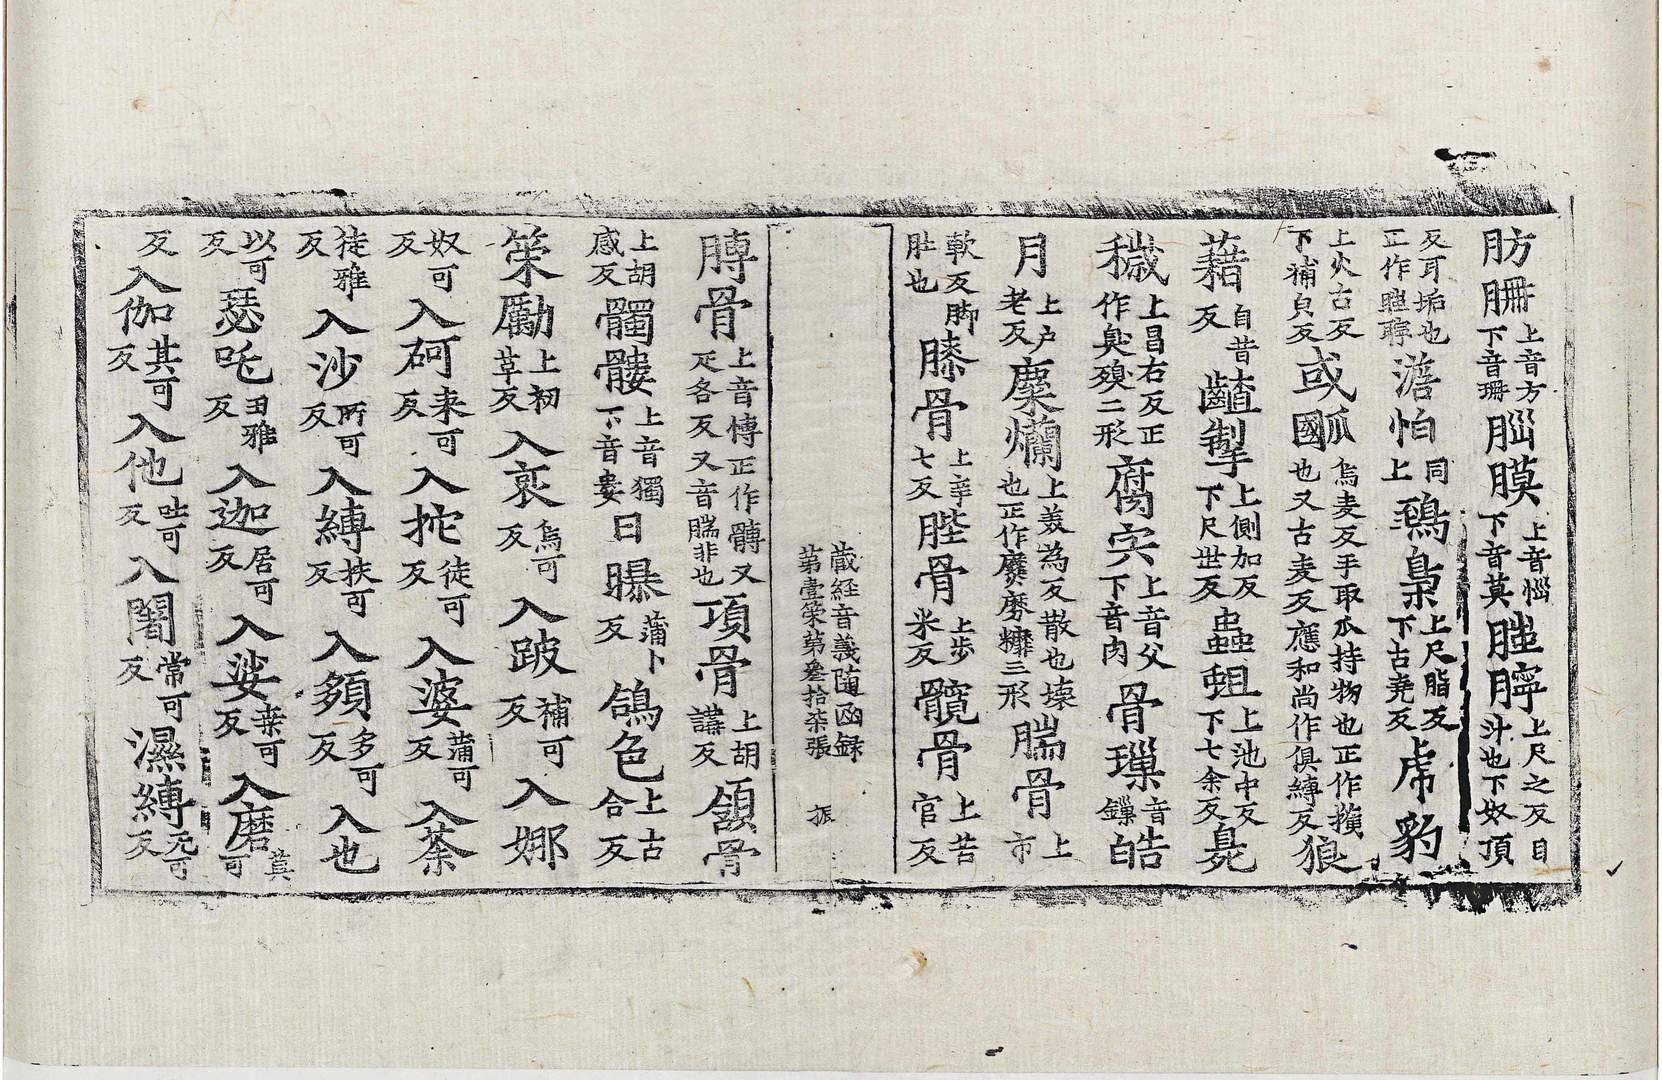 肪𦙱上音方下音珊𦛁膜上音惱下音莫𦜉聹上尺之反目汁也下奴頂
反耳垢也正作聹澹怕同上鵄梟上尺脂反下古堯反虎豹
上火古反下補皃反或㼌國烏麦反手取爪持物也正作摑也又古麦反應和尚作俱縛反狼
藉自昔反齇掣上側加反下尺世反蟲蛆上池中反下七余反臰
穢上昌右反正作臭殠二形腐宍上音父下音肉骨璅音鏁皓
月上戶老反糜爛上美為反散也壞也正作䊳糠三形腨骨上市
軟反脚肚也膝骨上辛七反䏶骨上步米反髖骨上苦官反
藏経音義隨函録第壹筞第叁拾柒張 振
膞骨上音慱正作䏝又疋各反又音腨非也項骨上胡講反頷骨
上胡感反髑髏上音獨下音婁日曝蒲卜反鴿色上古合反
筞勵上初革反入𮕵烏可反入跛補可反入娜
奴可反入砢来可反入拕徒可反入婆蒲可反入荼
徒雅反入沙所可反入縛扶可反入頞多可反入也
以可反瑟吒丑雅反入迦居可反入娑桒可反入磨莫可
反入伽其可反入他吐可反入闍常可反濕縛无可反